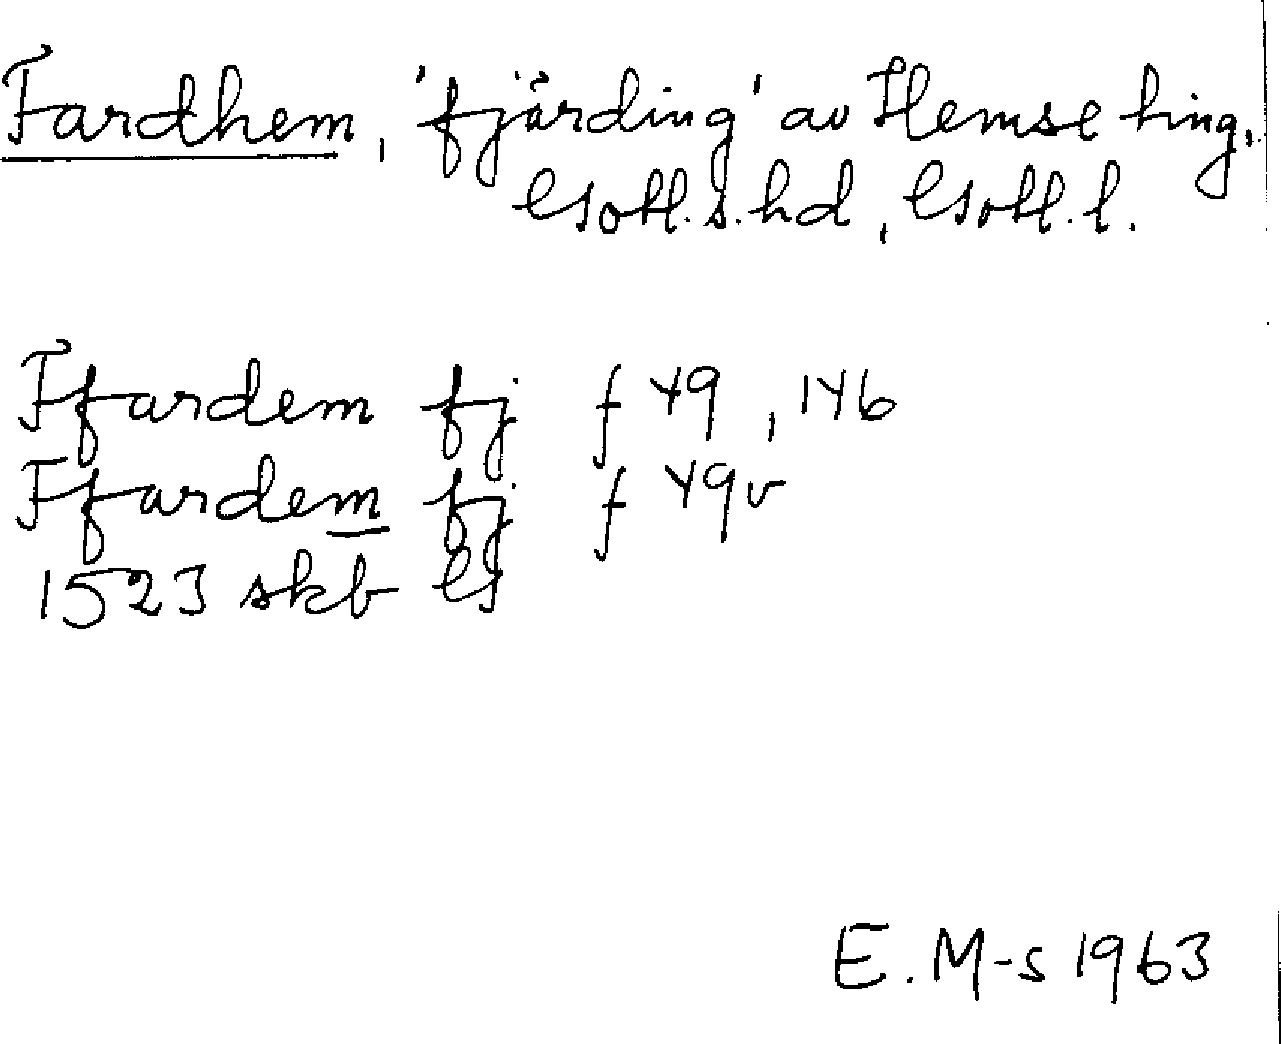 Fardhem, 'fjärding' av Hemse ting,
Gotl. s. hd, Gotl. l.
Ffardem fj f 49, 146
Ffardem fj f 49v
1523 skb G
E. M-s 1963